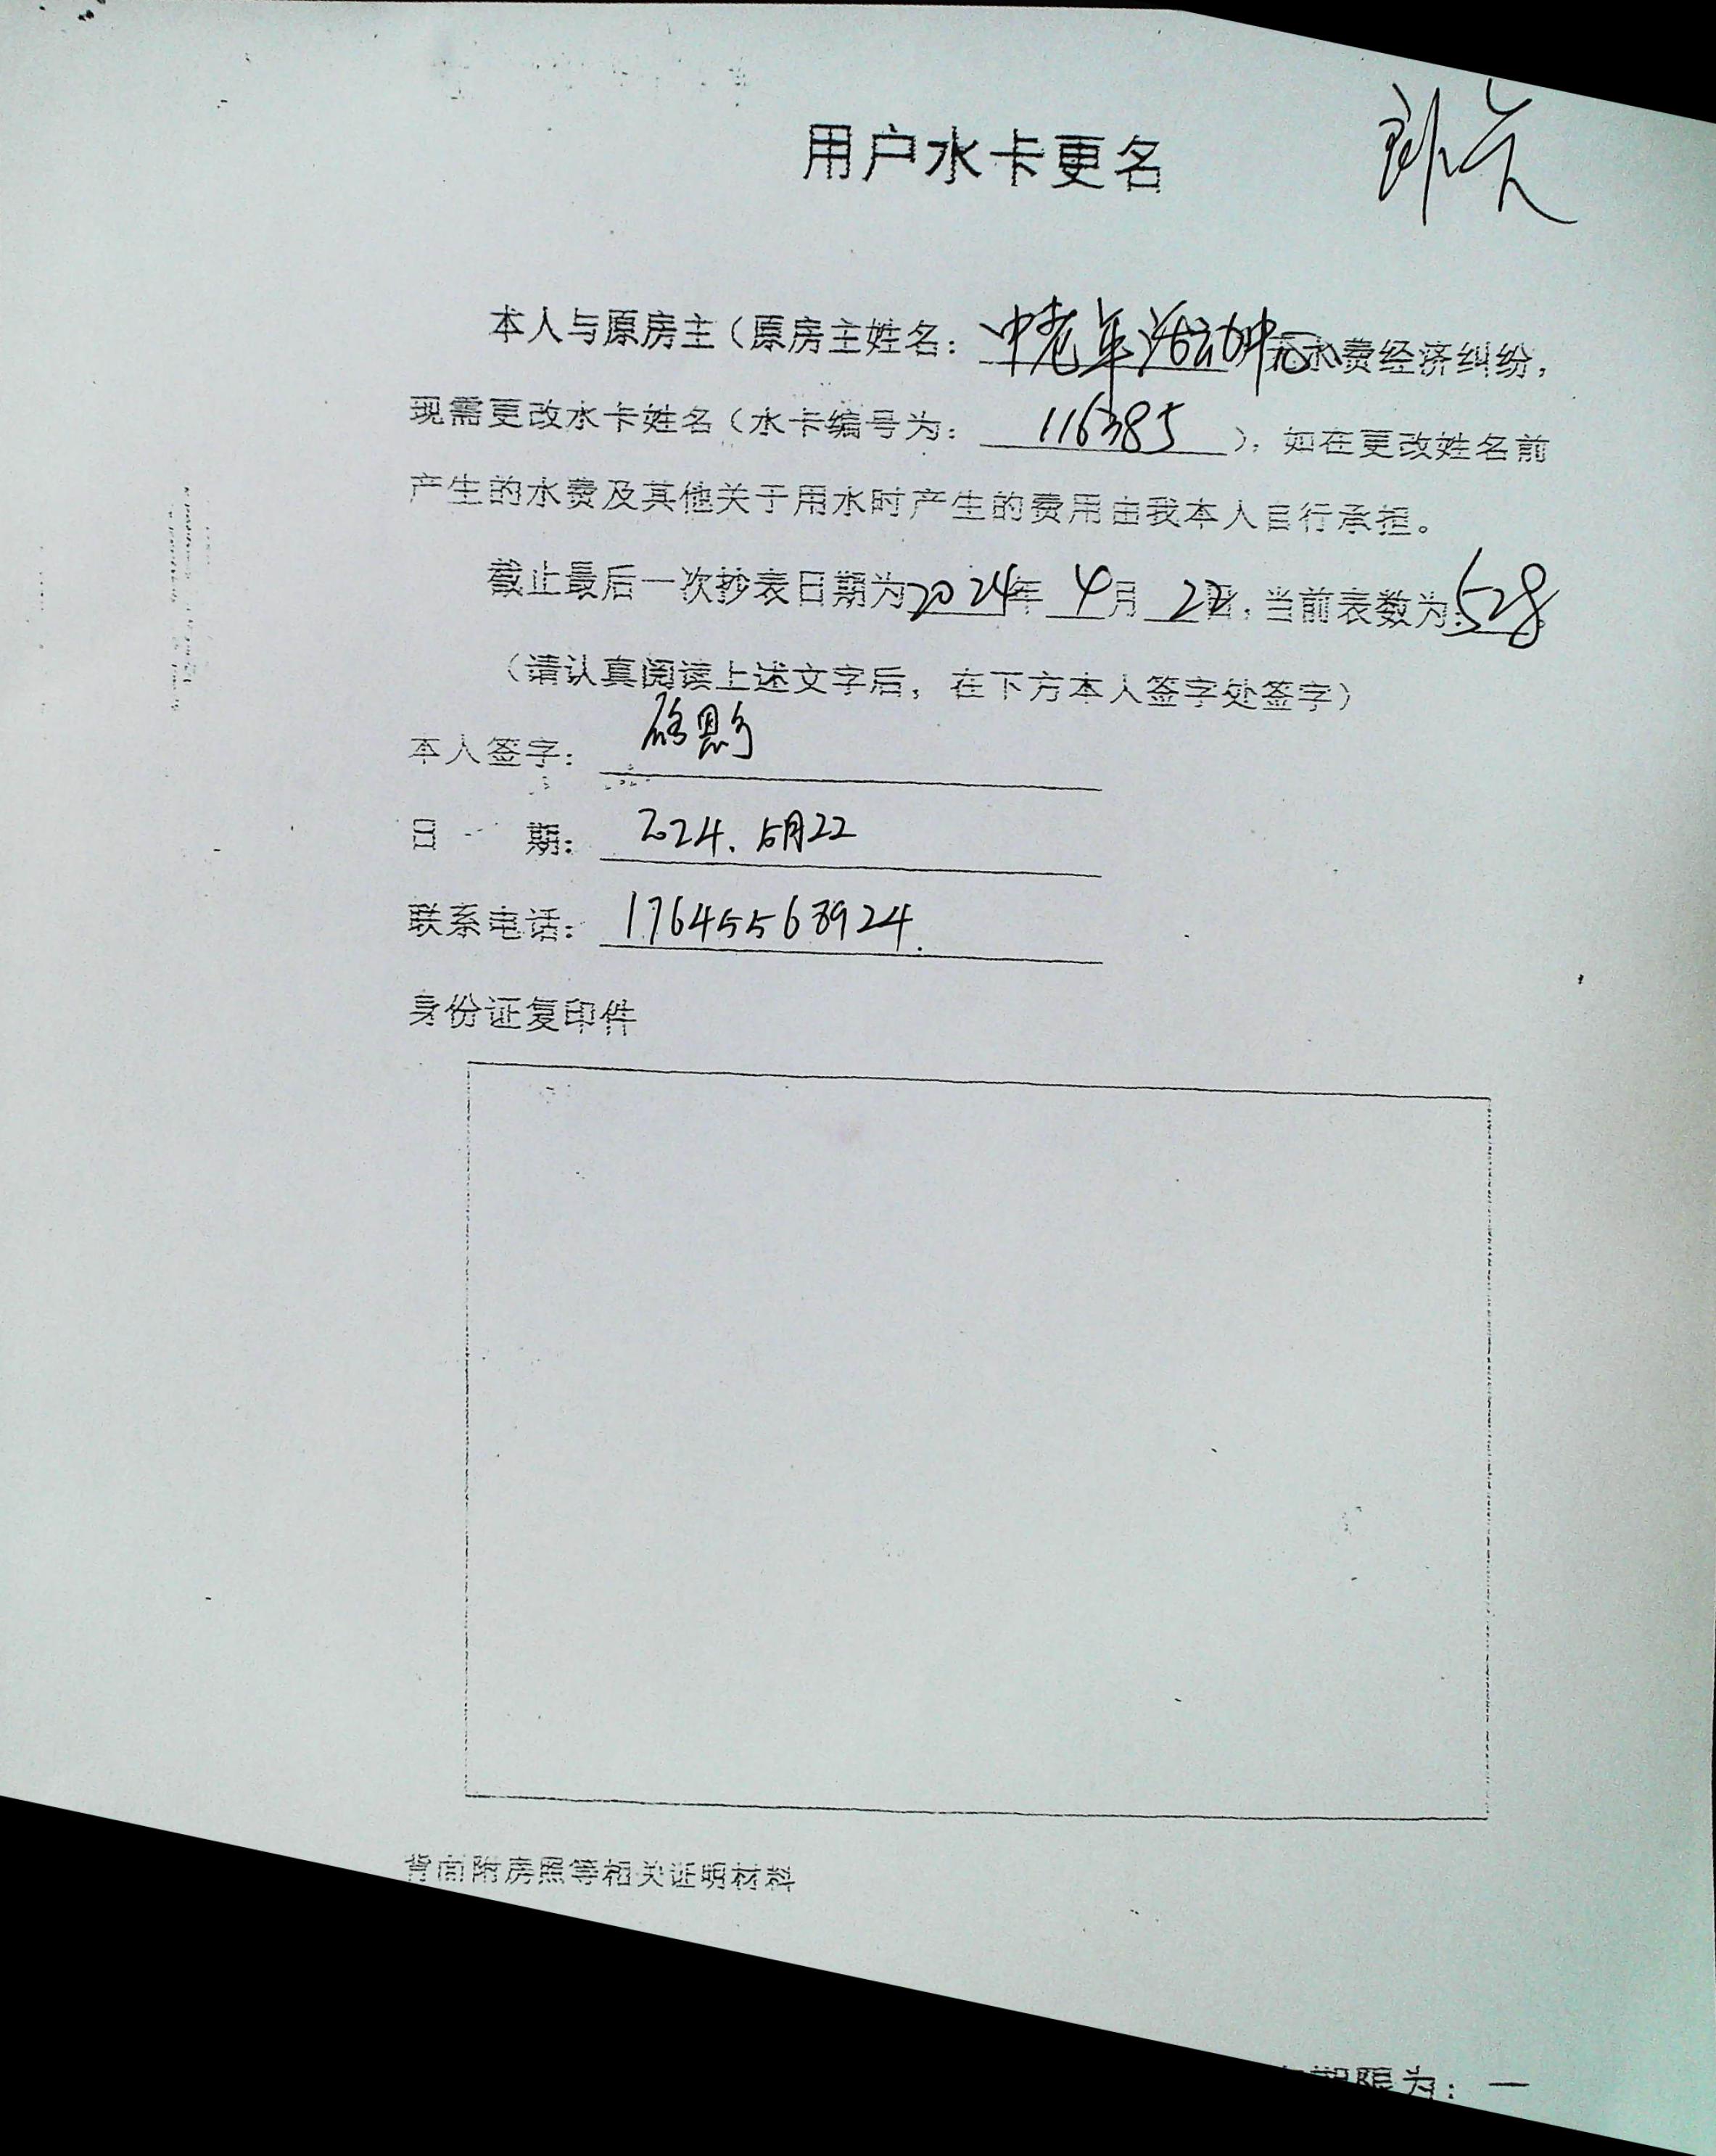 用户水卡更名
本人与原房主（原房主姓名：中老年活动中心无水费经济纠纷，
现需更改水卡姓名（水卡编号为：116385），如在更改姓名前
产生的水费及其他关于用水时产生的费用由我本人自行承担。
截止最后一次抄表日期为2024年4月22日，当前表数为：528。
（请认真阅读上述文字后，在下方本人签字处签字）
本人签字：
日期：2024.5月22
联系电话：17645563924.
身份证复印件
背面附房照等相关证明材料
期限为：一